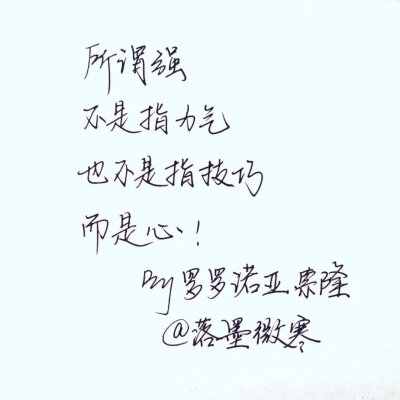 所谓强
不是指力气
也不是指技巧
而是心！
By 罗罗诺亚索隆
@落墨微寒